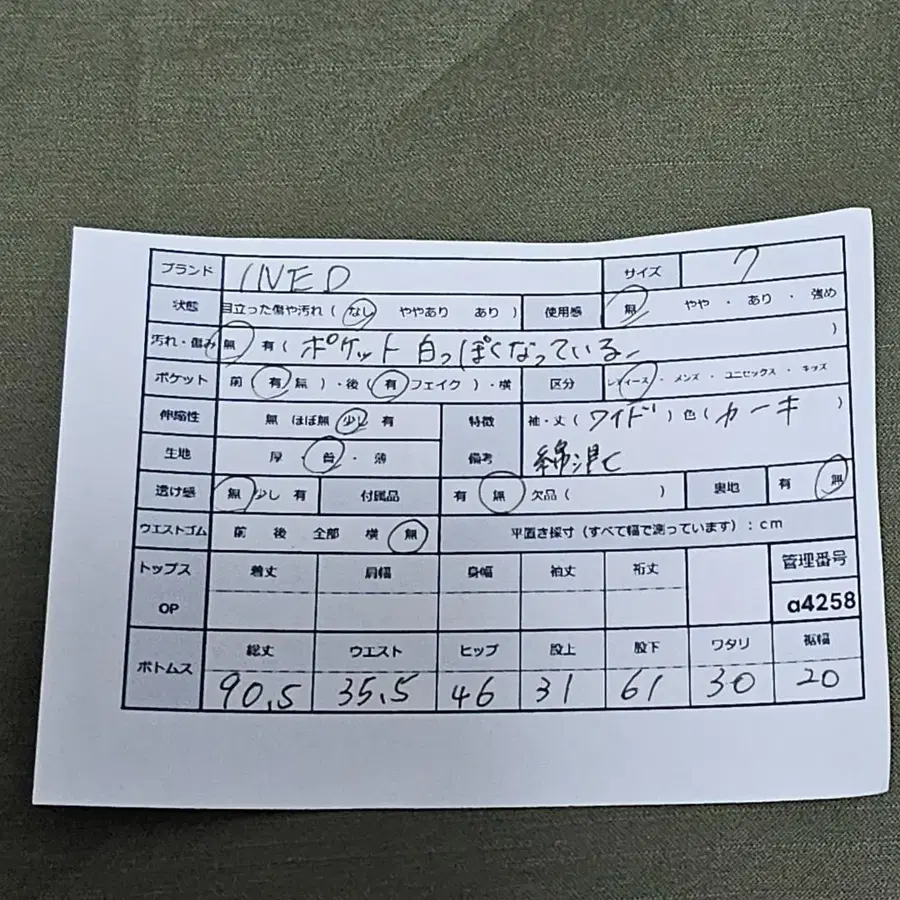 ブランド INED サイズ 7
状態 目立った傷や汚れ ( なし ややあり あり ) 使用感 無 やや ・ あり ・ 強め
汚れ・傷み 無 有 ( ポケット 白っぽくなっている )
ポケット 前 ( 有 無 ) ・後 ( 有 フェイク ) ・横 区分 レディース ・ メンズ ・ ユニセックス ・ キッズ
伸縮性 無 ほぼ無 少し 有 特徴 袖・丈 ( ワイド ) 色 ( カーキ )
生地 厚 ・ 普 ・ 薄 備考 綿混
透け感 無 少し 有 付属品 有 無 欠品 ( ) 裏地 有 無
ウエストゴム 前 後 全部 横 無 平置き採寸 (すべて幅で測っています) : cm
トップス 着丈 肩幅 身幅 袖丈 裄丈 管理番号
OP a4258
ボトムス 総丈 ウエスト ヒップ 股上 股下 ワタリ 裾幅
90.5 35.5 46 31 61 30 20